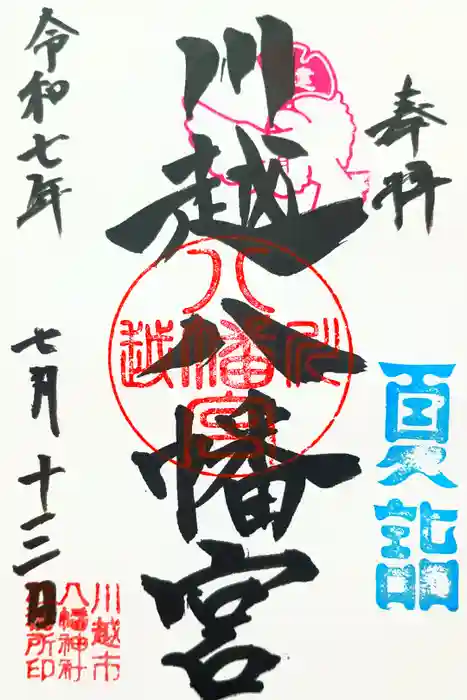 奉拝
夏詣
川越八幡宮
八幡宮
川越
令和七年
七月十三日
川越市
八幡神社
務所印